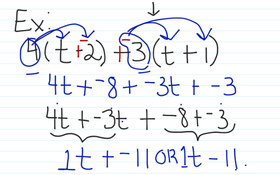 Ex:
4(t + -2) + -3(t + 1)
4t + -8 + -3t + -3
4t + -3t + -8 + -3
1t + -11 OR 1t - 11.